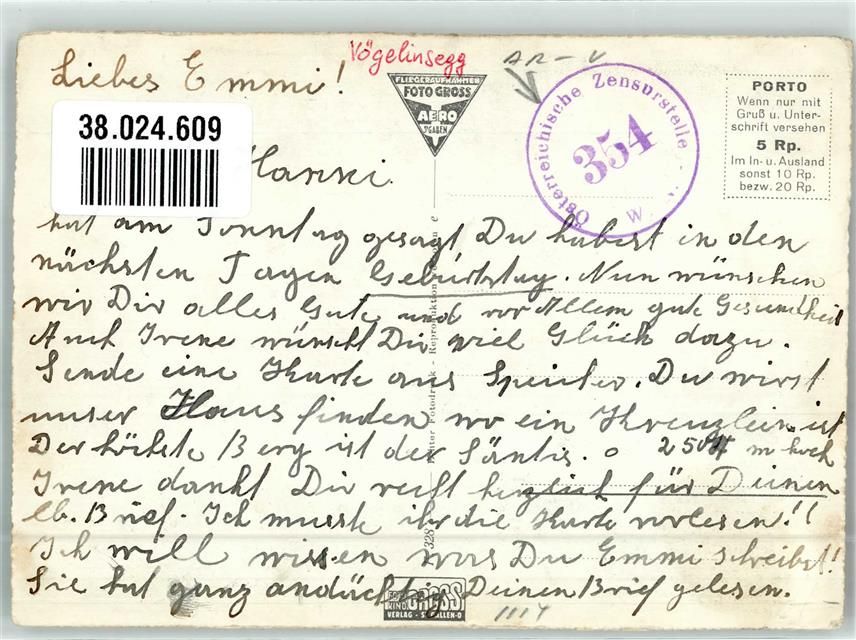 Vögelinsegg
Liebes Emmi!
FLIEGERAUFNAHMEN
FOTO GROSS
AERO
ST GALLEN
Österreichische Zensurstelle
354
W
PORTO
Wenn nur mit
Gruß u. Unter-
schrift versehen
5 Rp.
Im In- u. Ausland
sonst 10 Rp.
bezw. 20 Rp.
38.024.609
Hanni.
hat am Sonntag gesagt Du habest in den
nächsten Tagen Geburtstag. Nun wünschen
wir Dir alles Gute und vor Allem gute Gesundheit
Auch Irene wünscht Dir viel Glück dazu.
Sende eine Karte aus Speicher. Du wirst
unser Haus finden wo ein Kreuzlein ist
Der höchste Berg ist der Säntis. 2504 m hoch
Irene dankt Dir recht herzlich für Deinen
lb. Brief. Ich musste ihr die Karte vorlesen!!
Ich will wissen was Du Emmi schreibst!
Sie hat ganz andächtig Deinen Brief gelesen.
GROSS
VERLAG - ST. GALLEN-O
1114